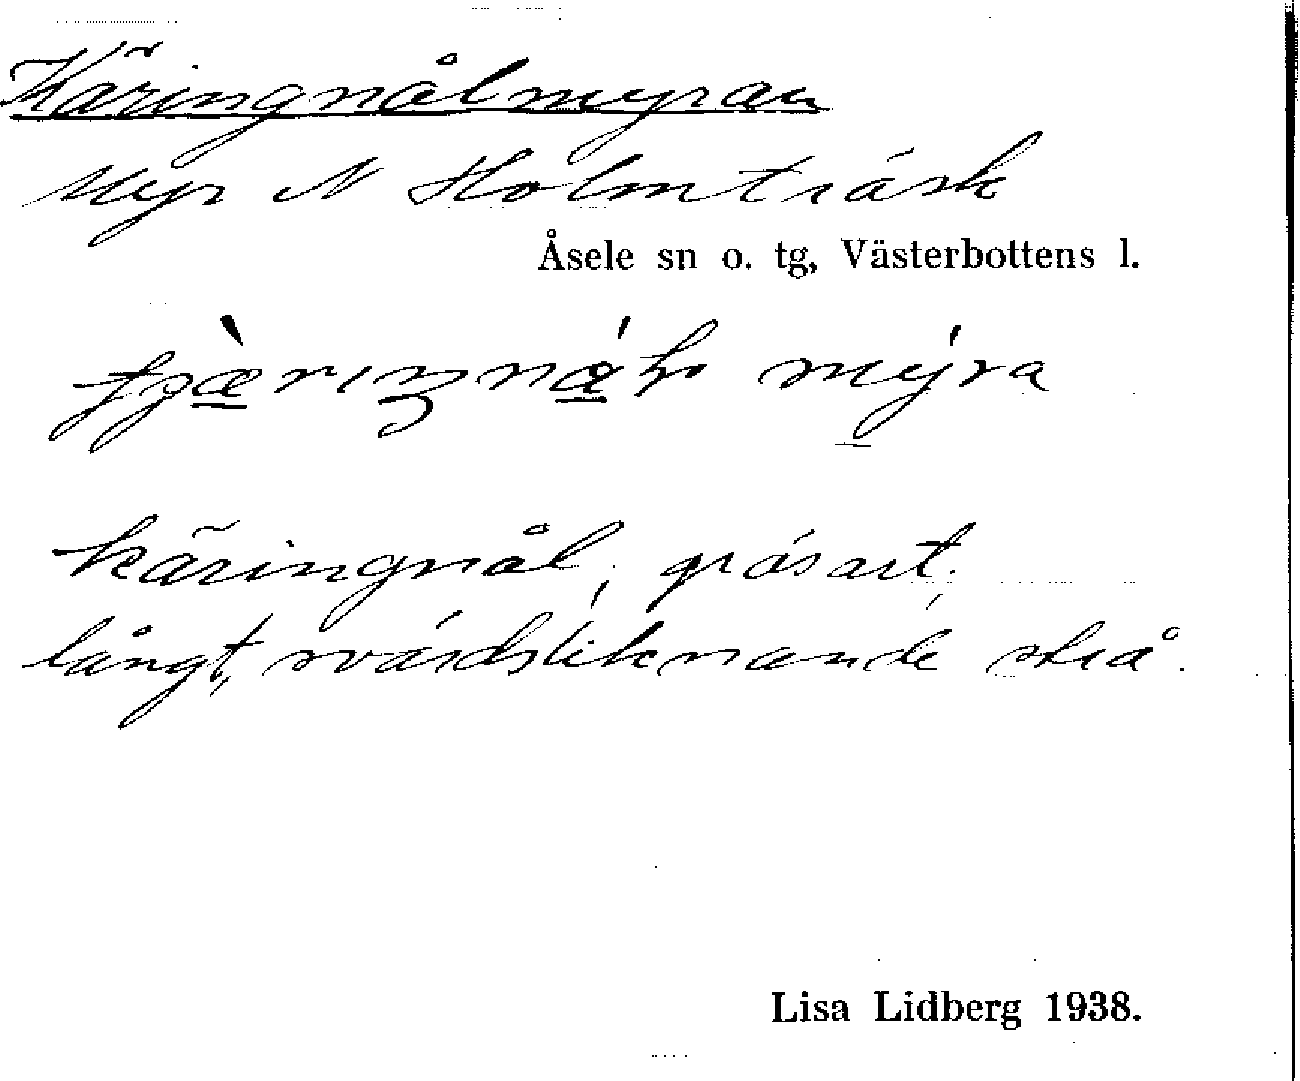 Käringnålmyran
Myr N Holmträsk
Åsele sn o. tg, Västerbottens l.
käringnål, gräsart,
långt, svärdsliknande strå.
Lisa Lidberg 1938.